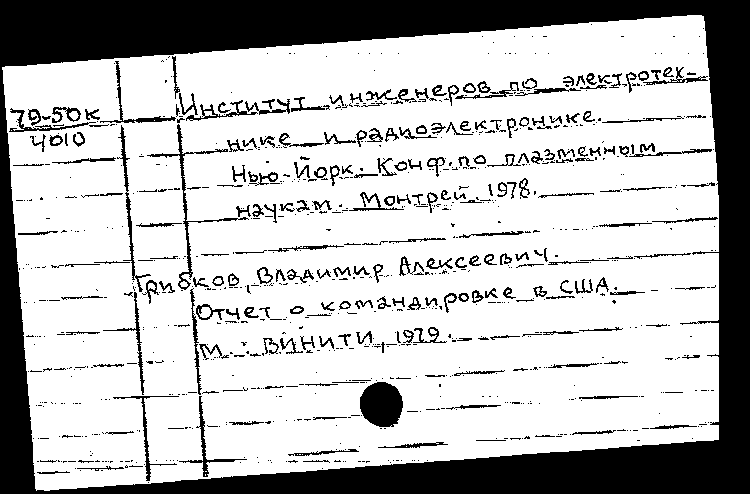 79-50к
4010
Институт инженеров по электротех-
нике и радиоэлектронике.
Нью-Йорк. Конф. по плазменным
наукам. Монтрей. 1978.
Грибков, Владимир Алексеевич.
Отчет о командировке в США.
М.: ВИНИТИ, 1979.